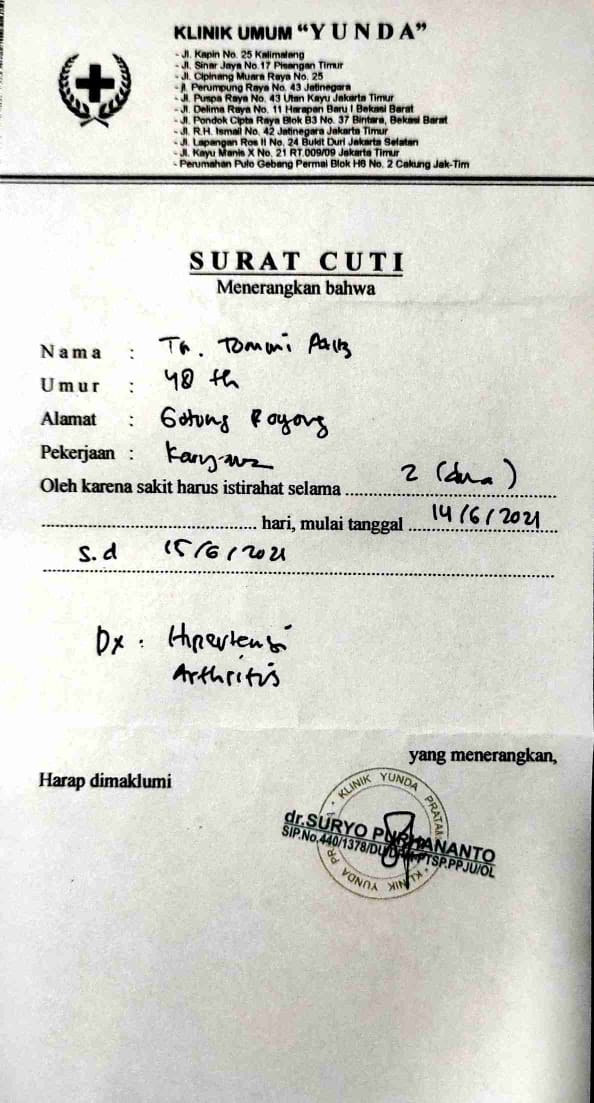 KLINIK UMUM "YUNDA"
- Jl. Kapin No. 25 Kalimalang
- Jl. Sinar Jaya No.17 Pisangan Timur
- Jl. Cipinang Muara Raya No. 25
- Jl. Perumpung Raya No. 43 Jatinegara
- Jl. Puspa Raya No. 43 Utan Kayu Jakarta Timur
- Jl. Delima Raya No. 11 Harapan Baru I Bekasi Barat
- Jl. Pondok Cipta Raya Blok B3 No. 37 Bintara, Bekasi Barat
- Jl. R.H. Ismail No. 42 Jatinegara Jakarta Timur
- Jl. Lapangan Ros II No. 24 Bukit Duri Jakarta Selatan
- Jl. Kayu Manis X No. 21 RT.009/09 Jakarta Timur
- Perumahan Pulo Gebang Permai Blok H6 No. 2 Cakung Jak-Tim
SURAT CUTI
Menerangkan bahwa
Nama : Tn. Tommi
Umur : 48 th
Alamat : Gotong Royong
Pekerjaan :
Oleh karena sakit harus istirahat selama 2 (dua)
hari, mulai tanggal 14/6/2021
s.d 15/6/2021
Dx : Hipertensi
Arthritis
yang menerangkan,
Harap dimaklumi
KLINIK YUNDA PRATAMA
dr.SURYO PURHANANTO
SIP.No.440/1378/
PTSP.PPJU/OL
KLINIK YUNDA